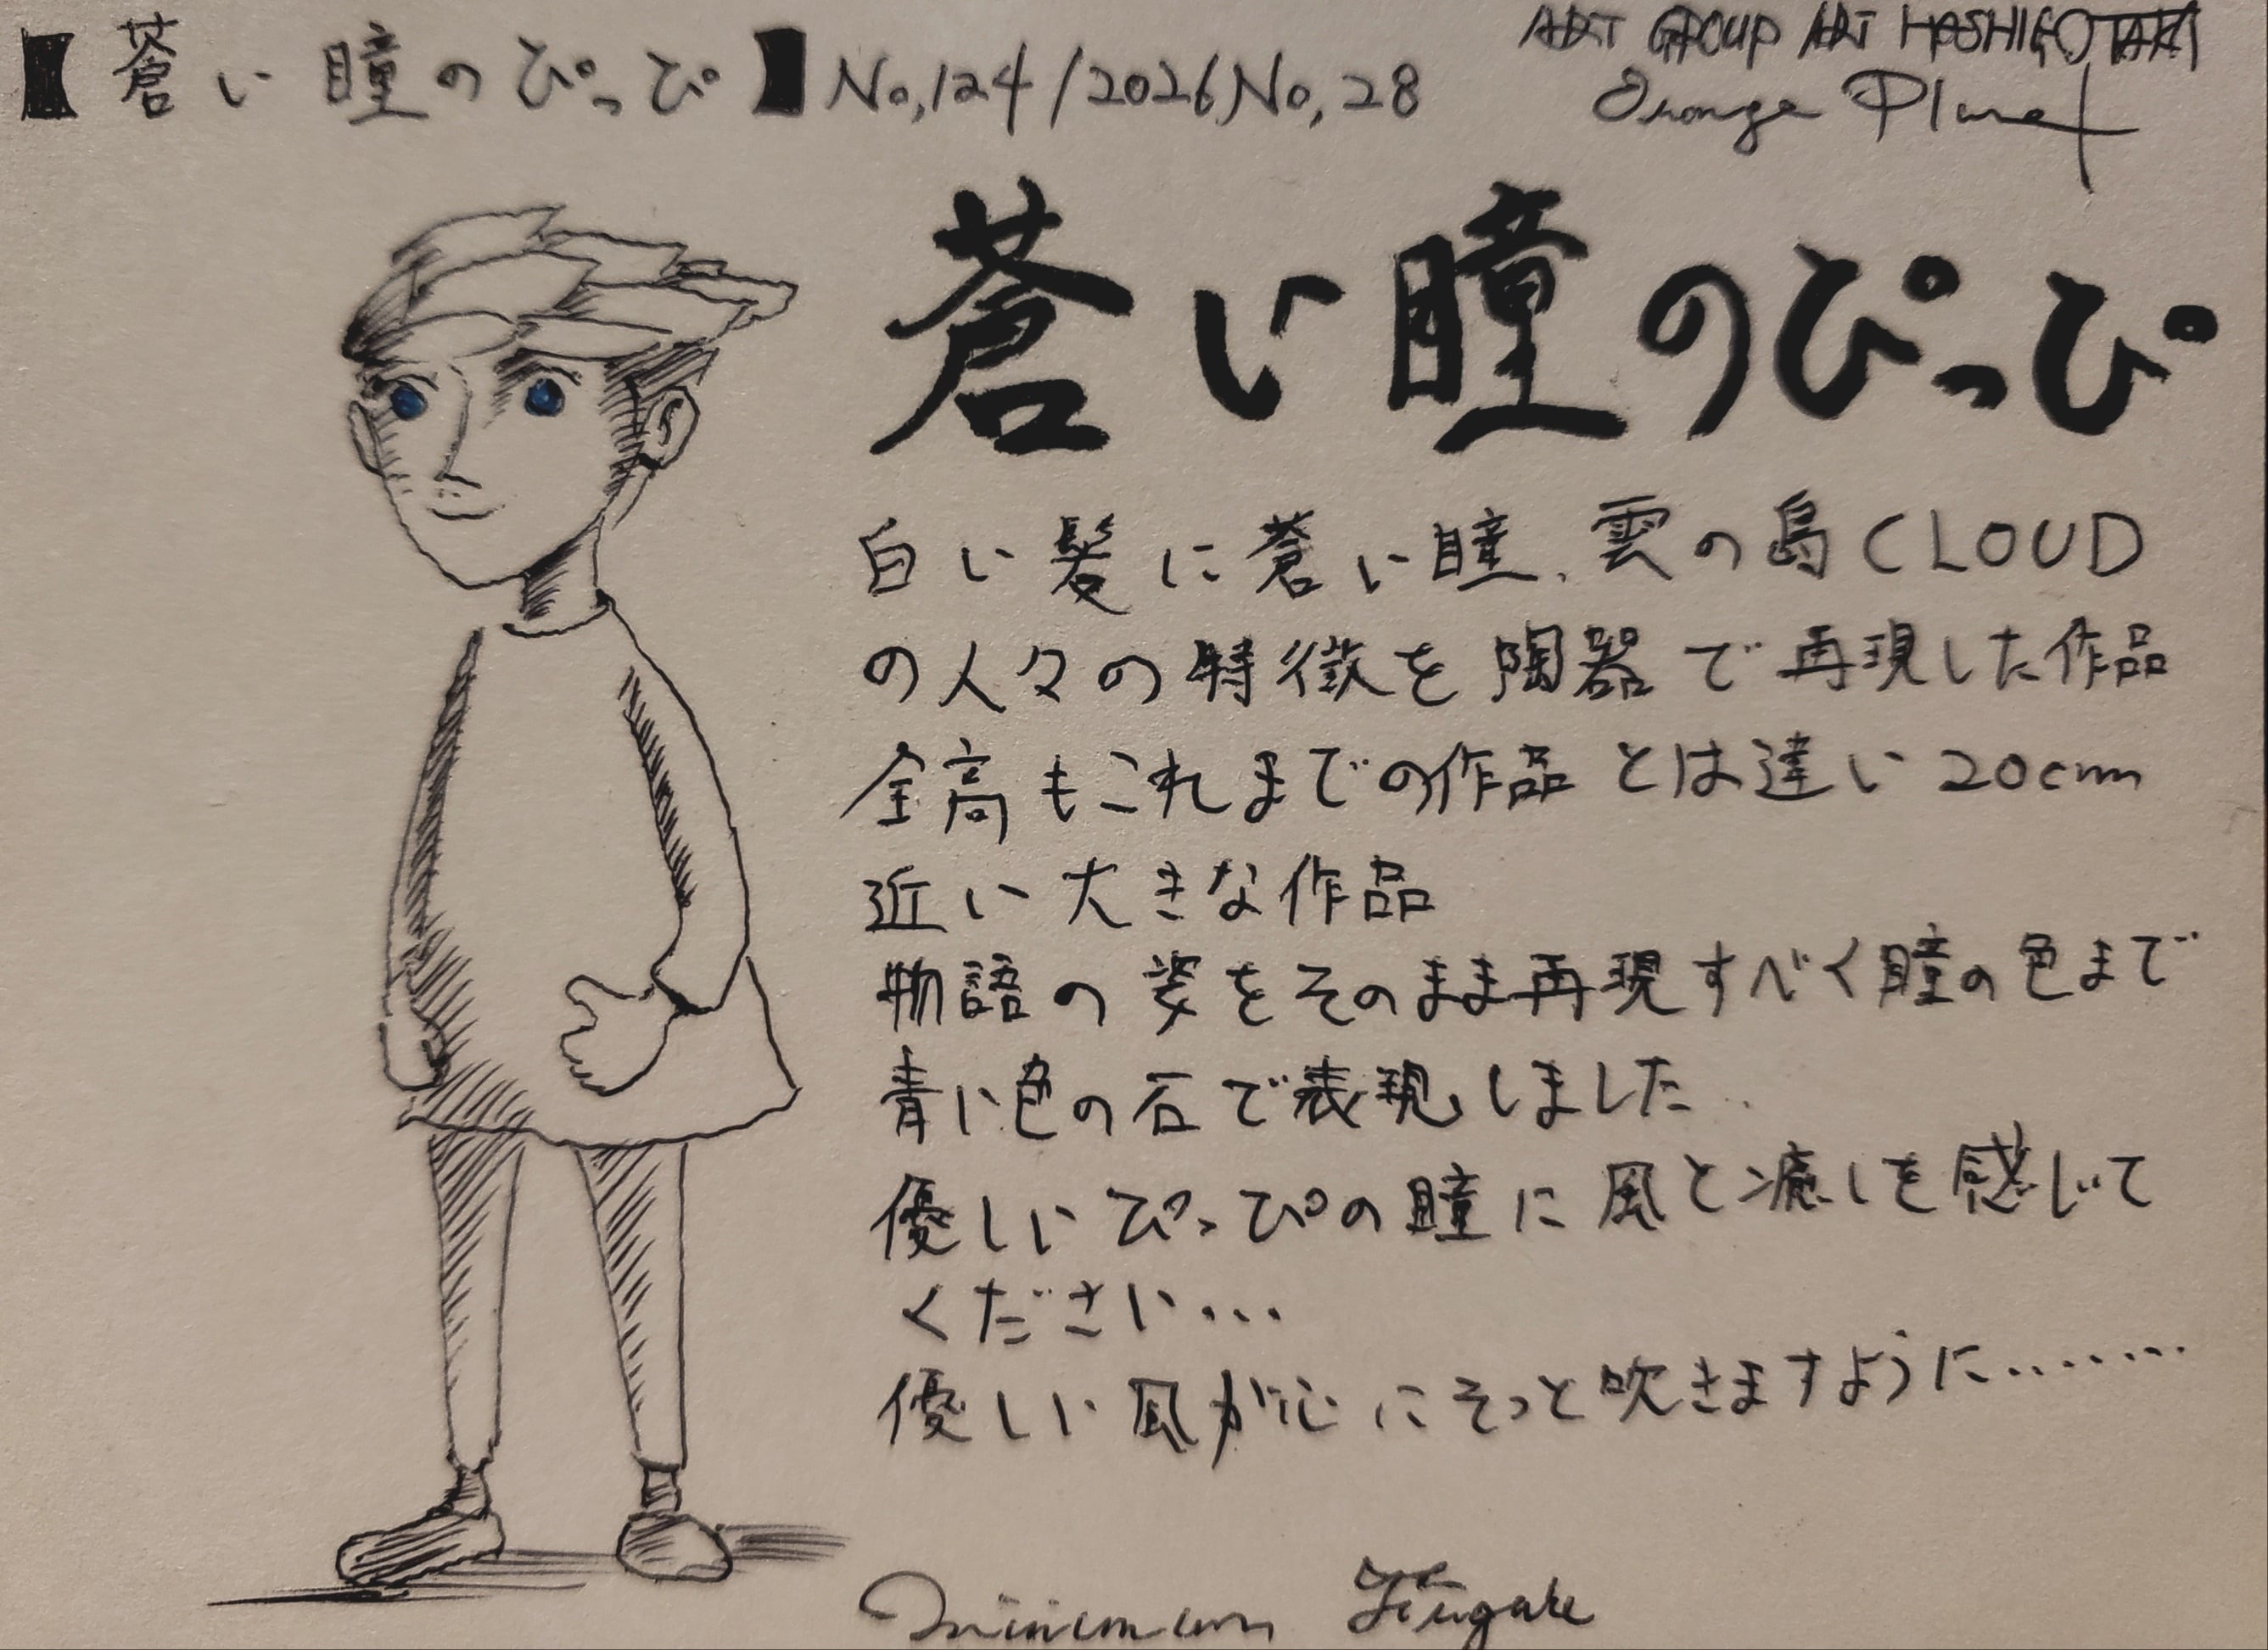 【蒼い瞳のぴっぴ】No,124/2026No,28
ART GROUP ART HOSHIGOTAKI
Orange Planet
蒼い瞳のぴっぴ
白い髪に蒼い瞳、雲の島CLOUD
の人々の特徴を陶器で再現した作品
全高もこれまでの作品とは違い20cm
近い大きな作品
物語の姿をそのまま再現すべく瞳の色まで
青い色の石で表現しました
優しいぴっぴの瞳に風と癒しを感じて
ください...
優しい風が心にそっと吹きますように........